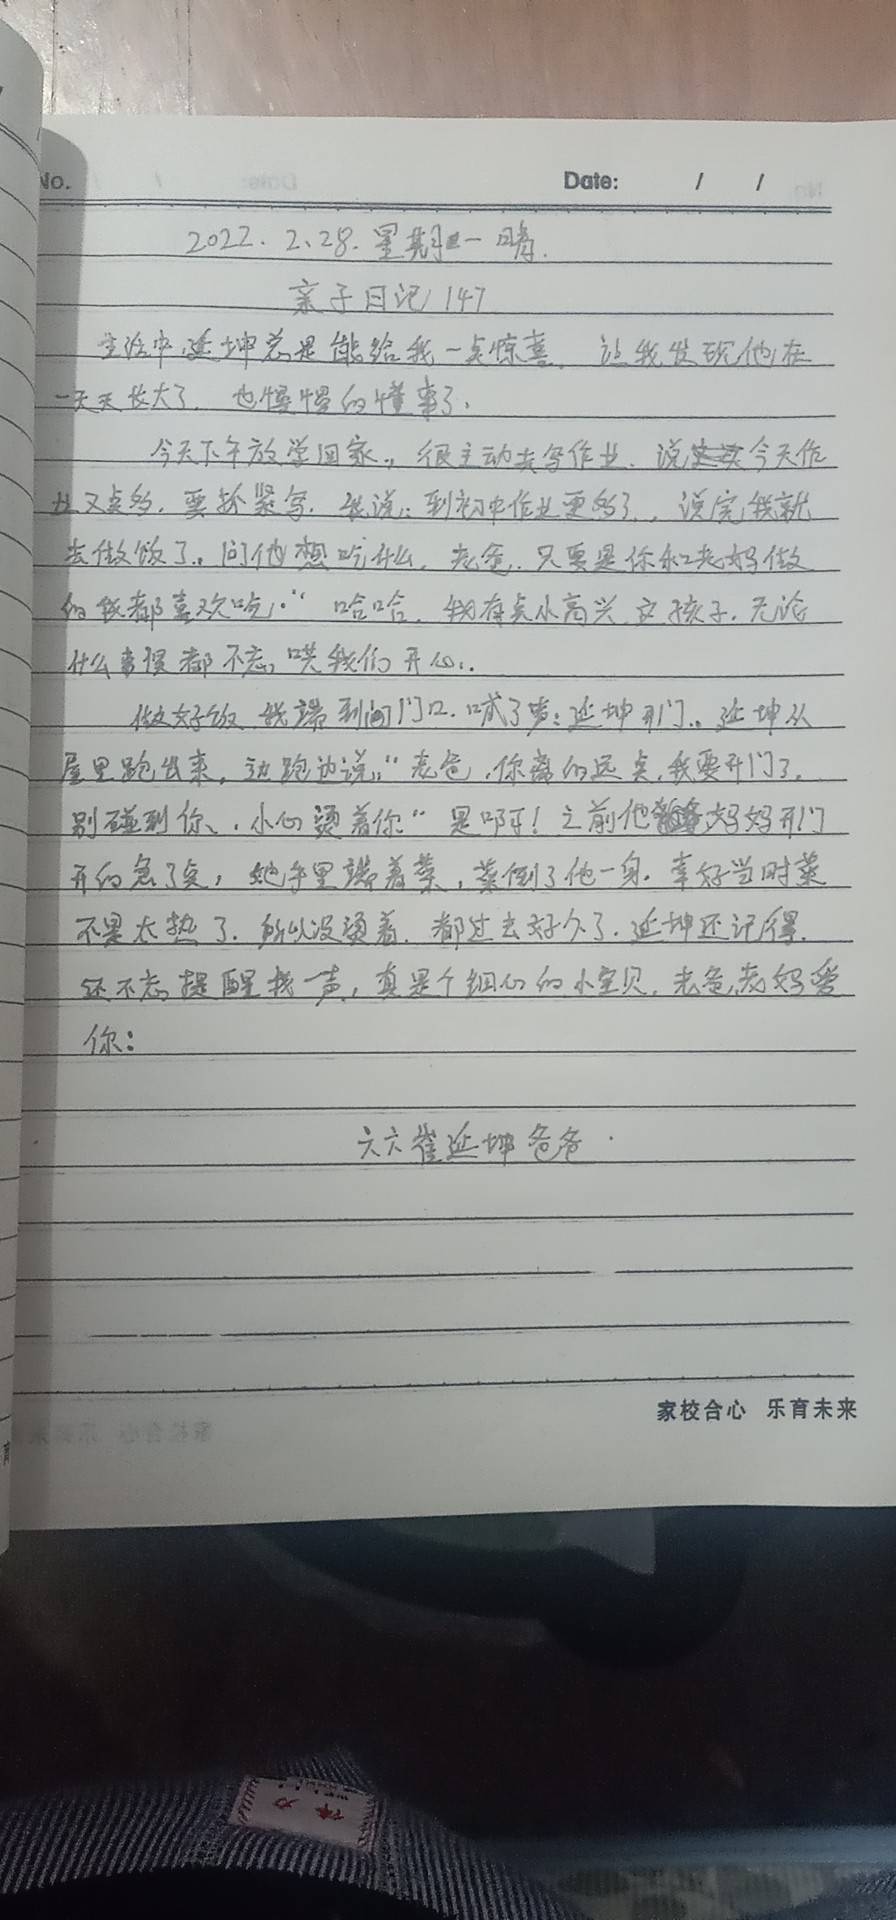 No.
Date: / /
2022.2、28.星期一 晴.
亲子日记147
生活中,延坤总是能给我一点惊喜,让我发现他在
一天天长大了,也慢慢的懂事了,
今天下午放学回家,,很主动去写作业.说今天作
业又点多,要抓紧写.我说:到初中作业更多了,,说完我就
去做饭了,问他想吃什么,老爸,只要是你和老妈做
的我都喜欢吃.“哈哈,我有点小高兴,这孩子,无论
什么时候都不忘哄我们开心,.
做好饭,我端到门口,喊了声:延坤开门,延坤从
屋里跑出来,边跑边说:“老爸,你离的远点,我要开门了,
别碰到你、,小心烫着你“是啊!之前他妈妈开门
开的急了点,她手里端着菜,菜倒了他一身.幸好当时菜
不是太热了.所以没烫着,都过去好久了.延坤还记得.
还不忘提醒我一声,真是个细心的小宝贝,老爸,老妈爱
你:
六六崔延坤爸爸.
家校合心 乐育未来